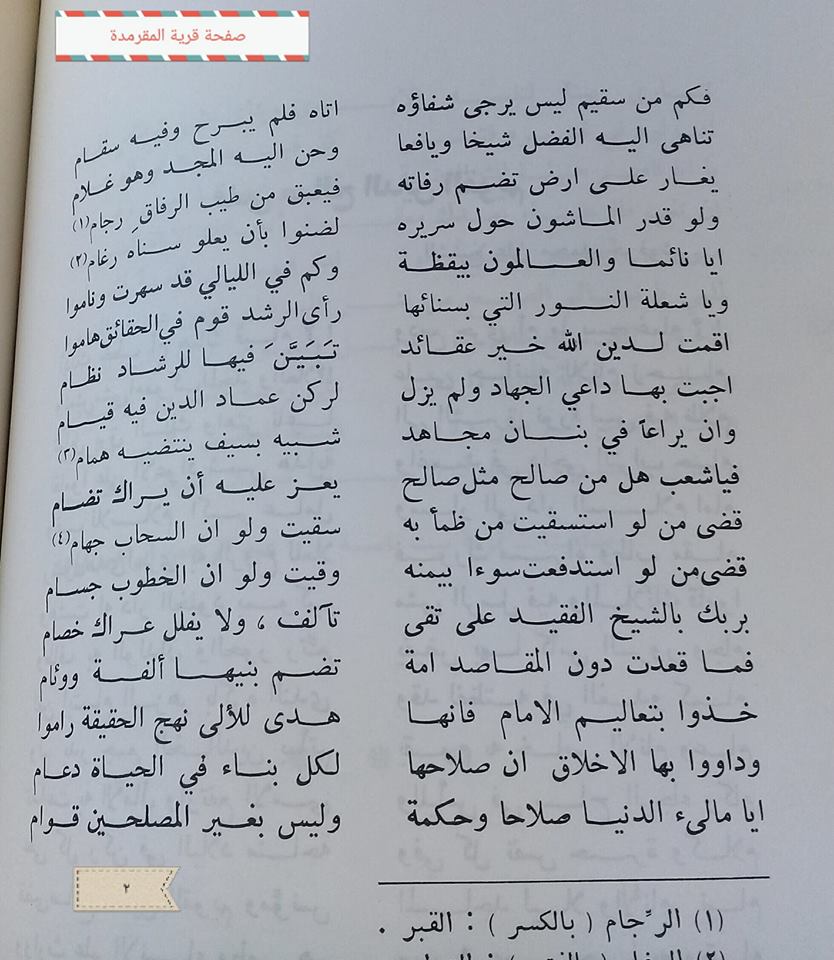 صفحة قرية المقرمدة
فكم من سقيم ليس يرجى شفاؤه اتاه فلم يبرح وفيه سقام
تناهى اليه الفضل شيخا ويافعا وحن اليه المجد وهو غلام
يغار على ارض تضم رفاته فيعبق من طيب الرفاق رجام(١)
ولو قدر الماشون حول سريره لضنوا بأن يعلو سناه رغام(٢)
ايا نائما والعالمون بيقظة وكم في الليالي قد سهرت وناموا
ويا شعلة النور التي بسنائها رأى الرشد قوم في الحقائق هاموا
اقمت لدين الله خير عقائد تَبَيَّنَ فيها للرشاد نظام
اجبت بها داعي الجهاد ولم يزل لركن عماد الدين فيه قيام
وان يراعاً في بنان مجاهد شبيه بسيف ينتضيه همام(٣)
فياشعب هل من صالح مثل صالح يعز عليه أن يراك تضام
قضى من لو استسقيت من ظمأ به سقيت ولو ان السحاب جهام(٤)
قضى من لو استدفعت سوءا بيمنه وقيت ولو ان الخطوب جسام
بربك بالشيخ الفقيد على تقى تآلفْ ، ولا يفلل عراك خصام
فما قعدت دون المقاصد امة تضم بنيها ألفة ووئام
خذوا بتعاليم الامام فانها هدى للألى نهج الحقيقة راموا
وداووا بها الاخلاق ان صلاحها لكل بناء في الحياة دعام
ايا مالىء الدنيا صلاحا وحكمة وليس بغير المصلحين قوام
٢
(١) الرِّجام ( بالكسر ) : القبر .